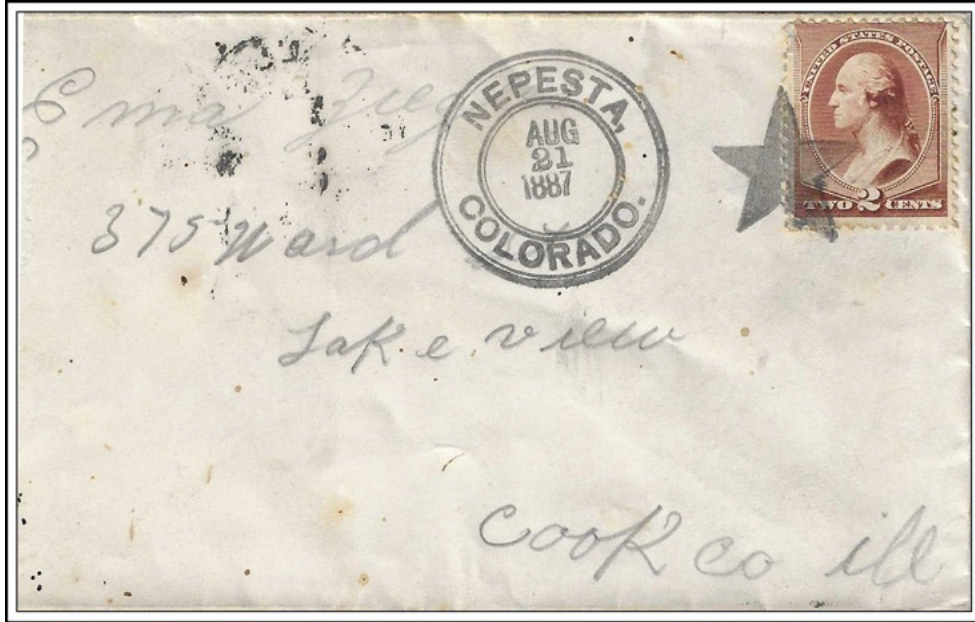 NEPESTA,
AUG
21
1887
COLORADO.
UNITED STATES POSTAGE
TWO 2 CENTS
Ema
375 Ward
Lake view
Cook co ill